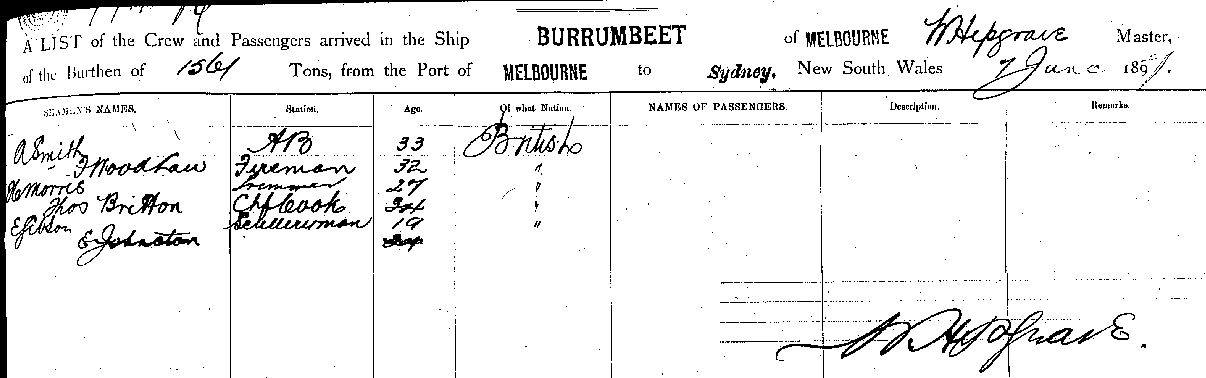 A LIST of the Crew and Passengers arrived in the Ship BURRUMBEET of MELBOURNE W Hepgrave Master,
of the Burthen of 1561 Tons, from the Port of MELBOURNE to Sydney, New South Wales 7 June 1897.
SEAMAN'S NAMES. Station. Age. Of what Nation. NAMES OF PASSENGERS. Description. Remarks.
A Smith AB 33 British
F Woodhau Fireman 32 "
H Morris Trimmer 27 "
Thos Britton Chf Cook 34 "
E Gibson Scullerman 19 "
E Johnston 34
W Hepgrave.